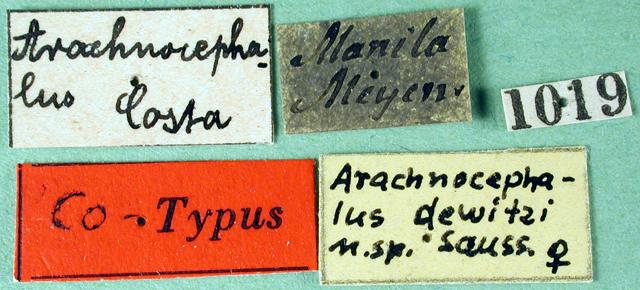 Arachnocepha-
lus Costa
Manila
Meyen.
1019
Co-Typus
Arachnocepha-
lus dewitzi
n.sp. Sauss. ♀